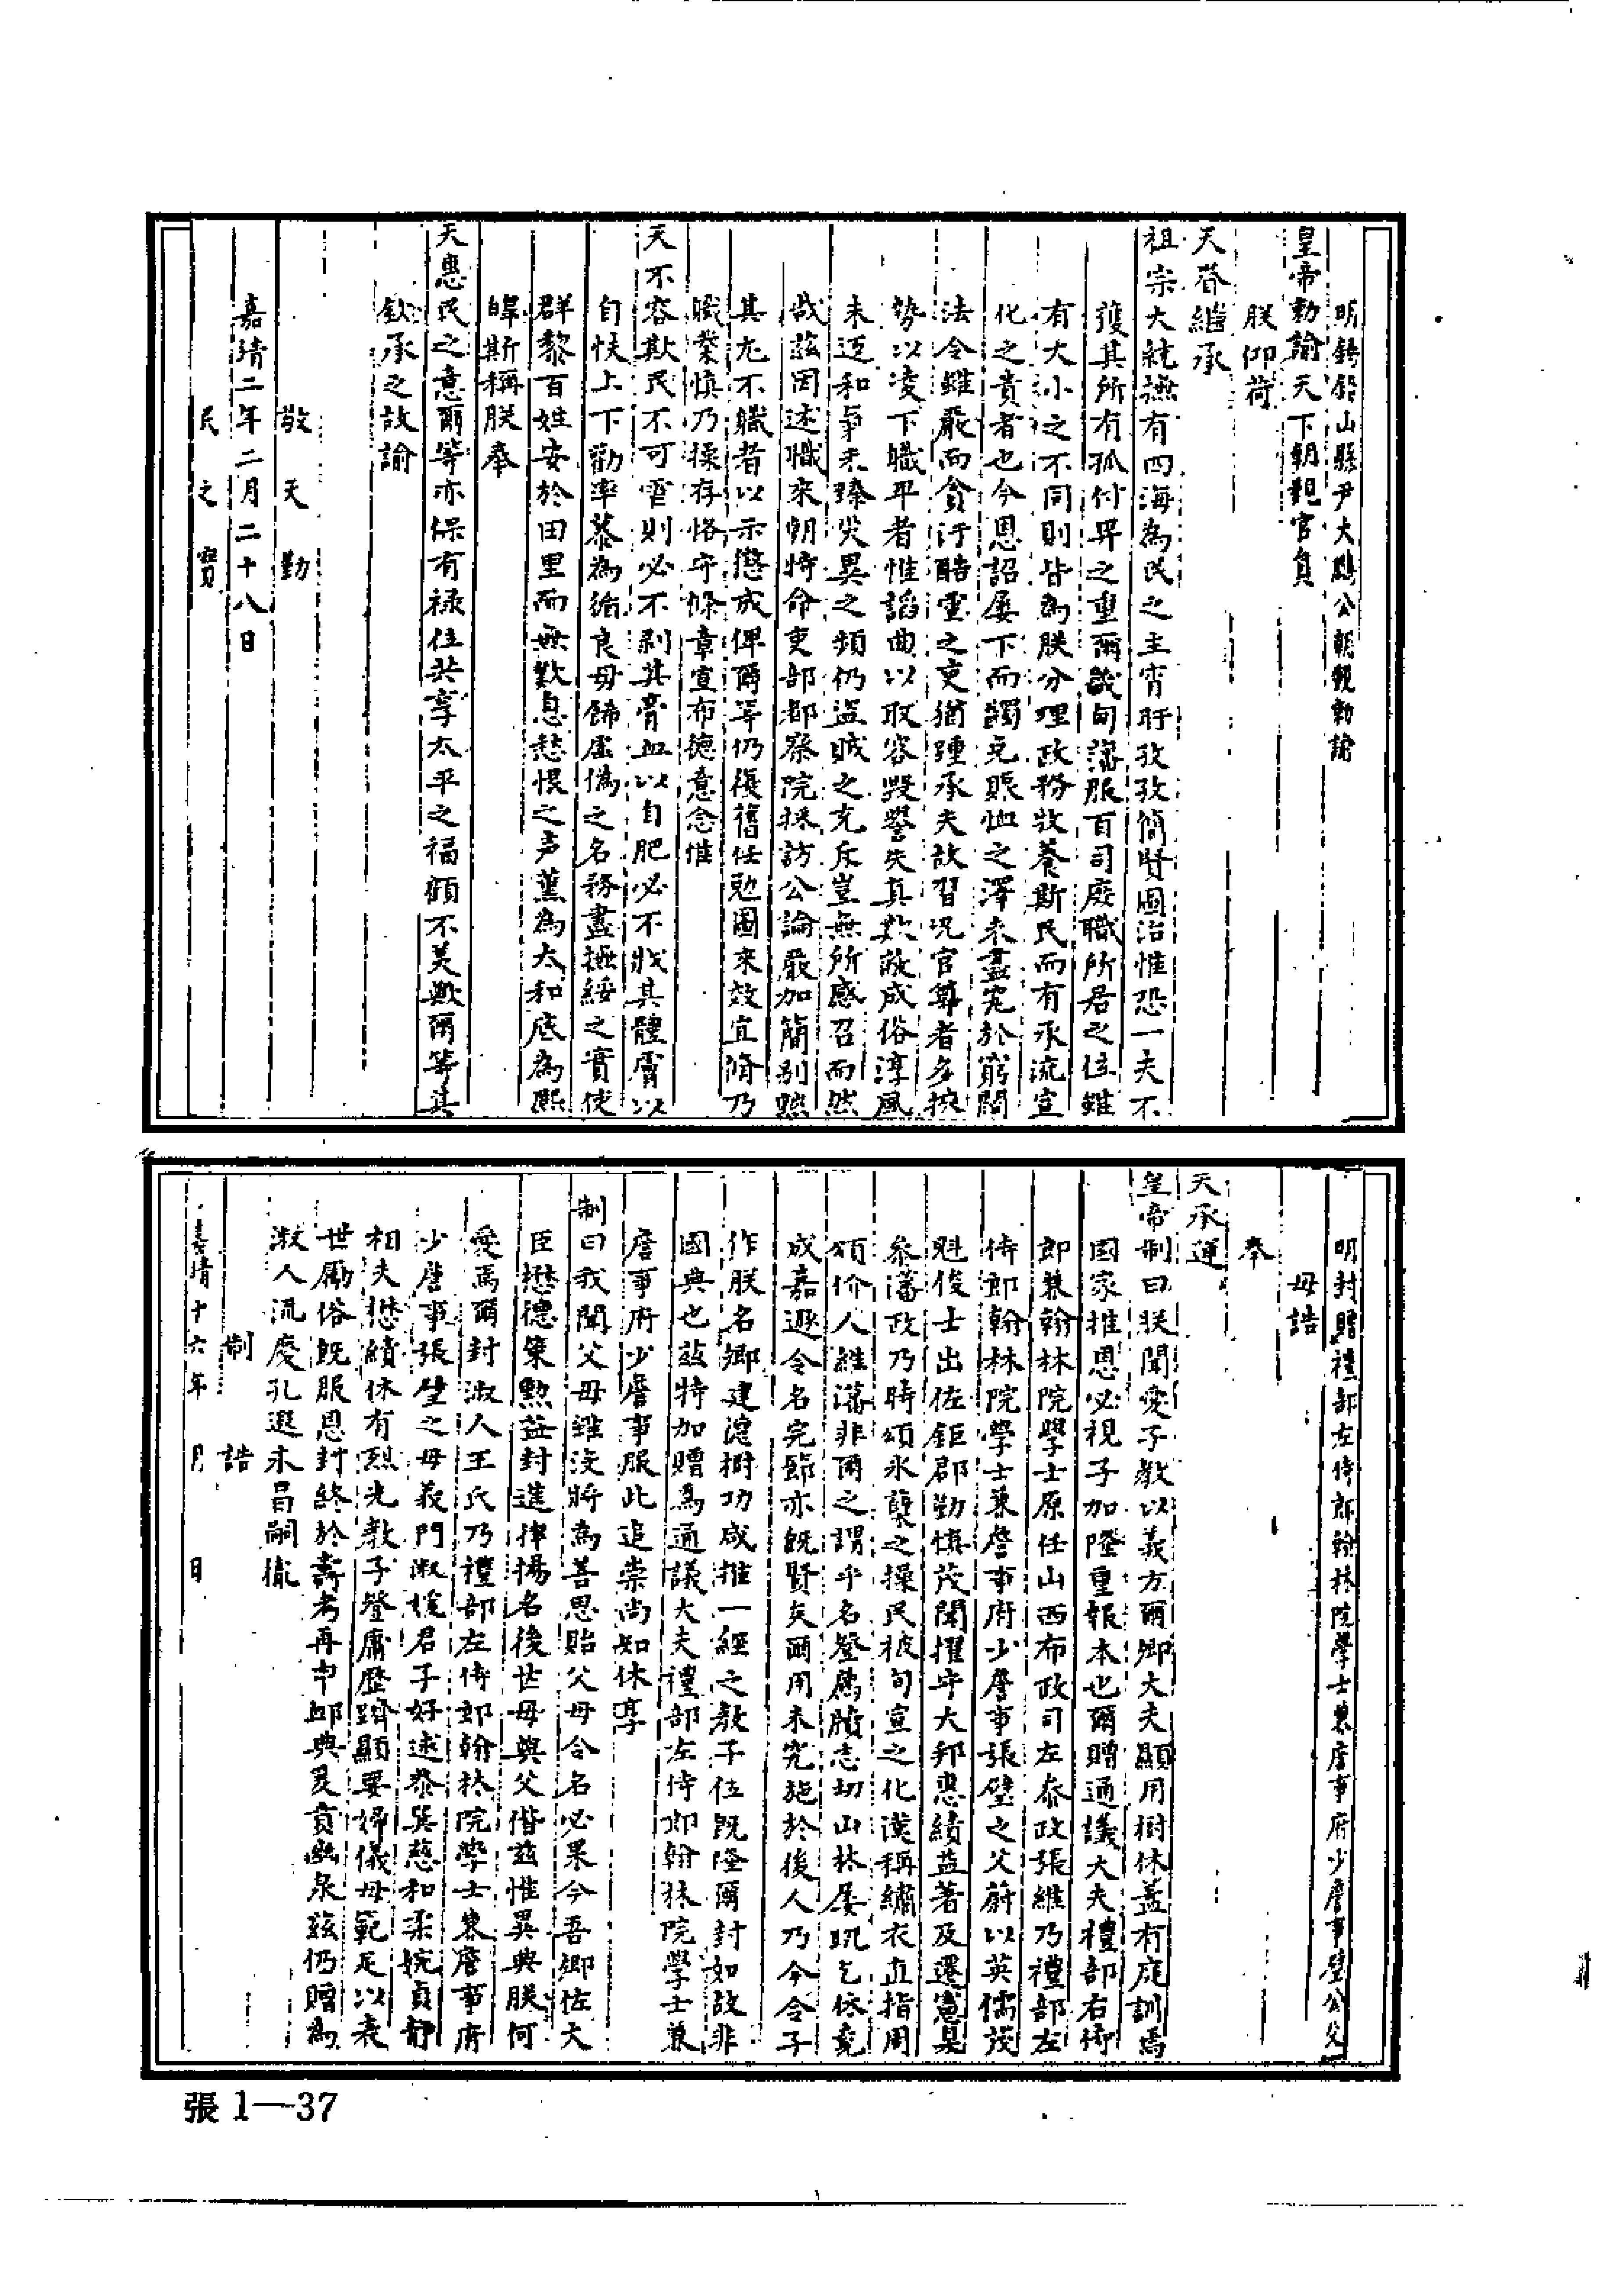 明鉛山縣尹大鵬公朝覲勅諭
皇帝勅諭天下朝覲官員
朕仰荷
天眷繼承
祖宗大統撫有四海為民之主宵旰孜孜簡賢圖治惟恐一夫不
獲其所有孤付畀之重爾畿甸藩服百司庶職所居之位雖
有大小之不同則皆為朕分理政務牧養斯民而有承流宣
化之責者也今恩詔屢下而蠲免賑恤之澤未盡究於窮閻
法令雖嚴而貪汙酷虐之吏猶踵承夫故習況官尊者多挾
勢以凌下職卑者惟謟曲以取容毀譽失真欺蔽成俗淳風
未迓和氣未臻災異之頻仍盜賊之充斥豈無所感召而然
哉茲因述職來朝特命吏部都察院採訪公論嚴加簡別黜
其尤不職者以示懲戒俾爾等仍復舊任勉圖來效宜脩乃
職業慎乃操存恪守條章宣布德意念惟
天不容欺民不可虐則必不剥其膏血以自肥必不戕其體膚以
自快上下勸率恭為循良毋飾虛偽之名務盡撫綏之實使
群黎百姓安於田里而無歎息愁恨之声薰為太和底為熙
皡斯稱朕奉
天惠民之意爾等亦保有祿位共享太平之福顧不美歟爾等其
欽承之故諭
敬天勤
嘉靖二年二月二十八日
民之寶
明封贈禮部左侍郎翰林院學士兼詹事府少詹事璧公父
母誥
奉
天承運
皇帝制曰朕聞愛子教以義方爾卿大夫顯用樹休葢有庭訓焉
國家推恩必視子加隆重報本也爾贈通議大夫禮部右侍
郎兼翰林院學士原任山西布政司左泰政張維乃禮部左
侍郎翰林院學士兼詹事府少詹事張璧之父蔚以英儒茂
魁俊士出佐鉅郡勤慎茂聞擢守大邦惠績益著及遷憲臬
叅藩政乃時頌氷蘗之操民被旬宣之化漢稱繡衣直指周
頌价人維藩非爾之謂乎名登薦牘志切山林屢既乞休竟
成嘉遯令名完節亦既賢矣爾用未究施於後人乃今令子
作朕名卿建德樹功咸推一經之教子位既隆爾封如故非
國典也茲特加贈為通議大夫禮部左侍郎翰林院學士兼
詹事府少詹事服此追崇尚知休享
制曰我聞父母雖沒將為善思貽父母令名必果今吾卿佐大
臣懋德策勲益封進律揚名後世母與父偕茲惟異典朕何
愛焉爾封淑人王氏乃禮部左侍郎翰林院學士兼詹事府
少詹事張璧之母義門淑媛君子好逑恭巽慈和柔婉貞靜
相夫懋績休有烈光教子登庸歷躋顯要婦儀母範足以表
世勵俗既服恩封終於壽考再申卹典爰賁幽泉茲仍贈為
淑人流慶孔遐永昌嗣胤
制誥
嘉靖十六年 月 日
張1—37